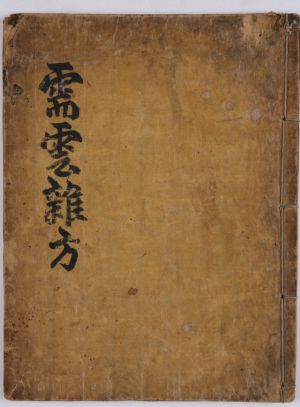 需雲雜方